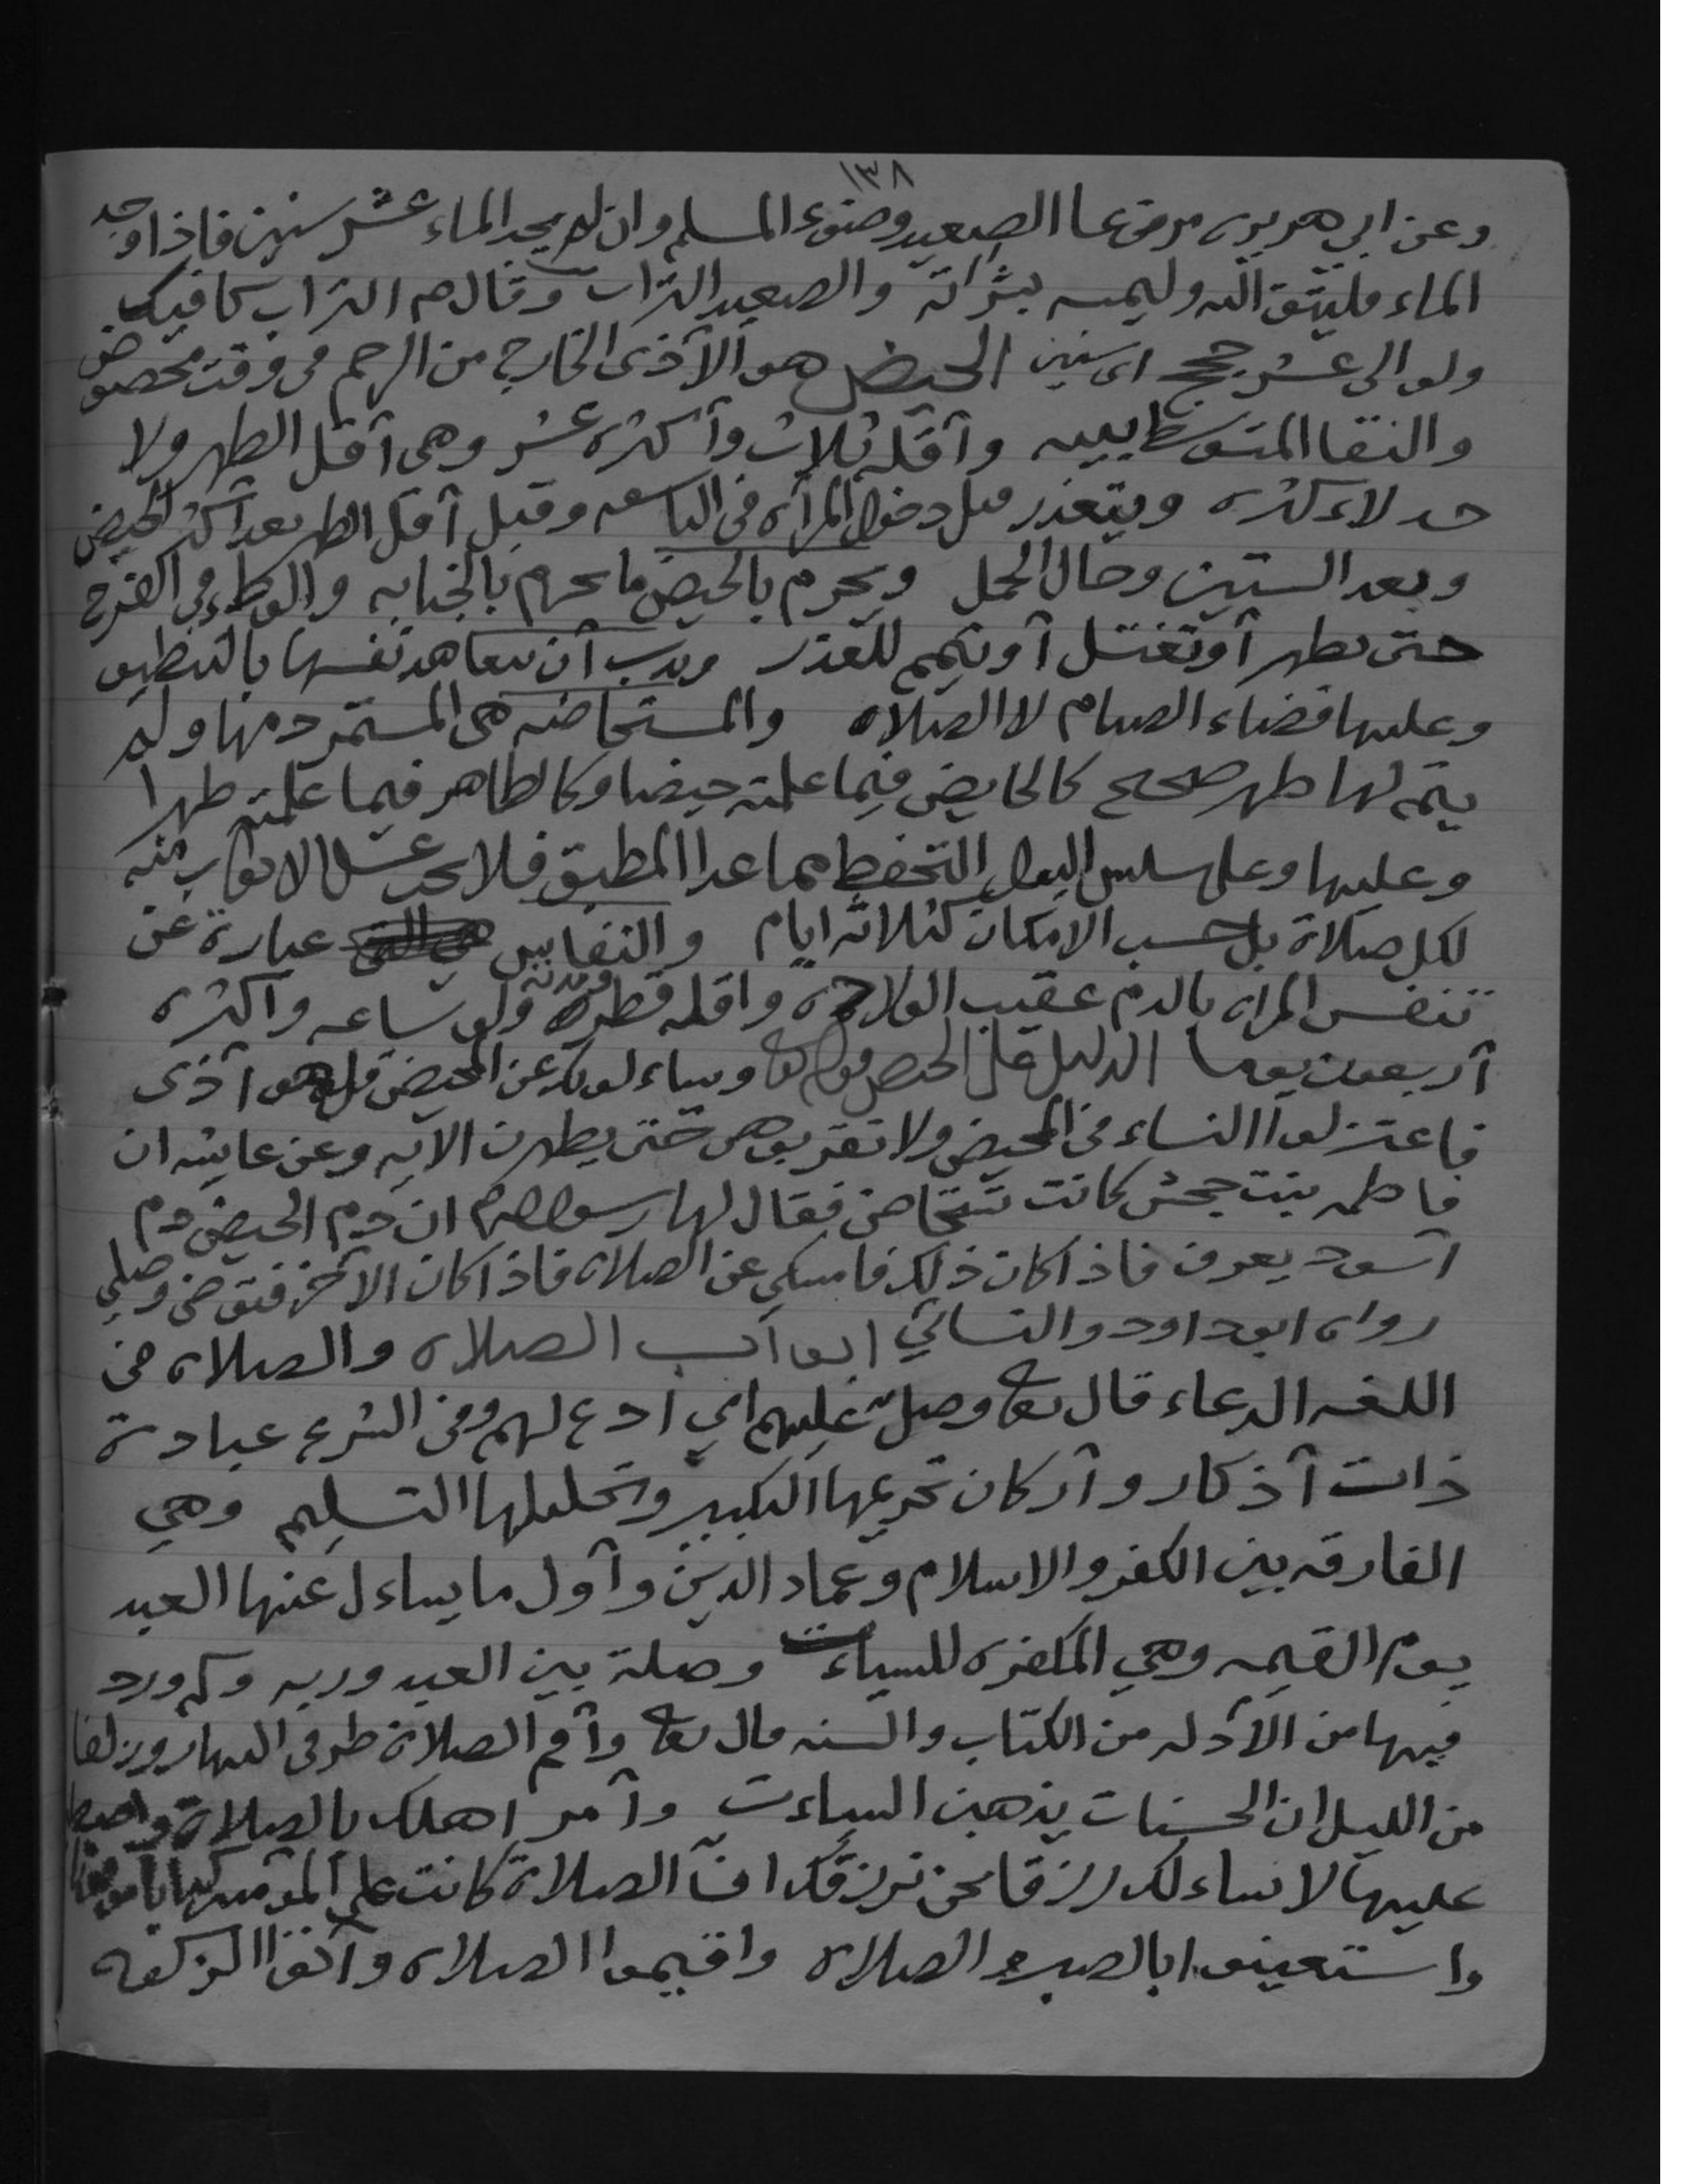 ١٣٨
وعن ابي هريره مرفوعا الصعيد وضوء المسلم وان لم يجد الماء عشر سنين فاذا وجد
الماء فليتق الله وليمسه بشراته والصعيد التراب وقال م التراب كافيك
ولو الى عشر حجج اى سنين الحيض هو الآذى الخارج من الرحم في وقت مخصوص
والنقا المتوسط بينه وآقله ثلاث وآكثره عشر وهي آقل الطهر ولا
حد لاءكثره ويتعذر قبل دخول المرآه في التاسعه وقبل آقل الطهر بعد آكثر الحيض
وبعد الستين وحال الحمل ويحرم بالحيض ما يحرم بالجنابه والوطء في الفرج
حتى تطهر آو تغتسل آو تيمم للعذر وندب آن تعاهد نفسها بالتنظيف
وعليها قضاء الصيام لا الصلاه والمستحاضه هي المستمر دمها ولم
يتم لها طهر صحيح كالحايض فيما علمته حيضا وكالطاهر فيما علمته طهرا
وعليها وعلى سلس البول التحفظ مما عدا المطبق فلا يجب غسل الاثواب منه
لكل صلاة بل حسب الامكان كثلاثه ايام والنفاس عبارة عن
تنفس المراه بالدم عقيب الولاده واقله قطره ولو ساعه واكثره
آربعون يوما الدليل على الحيض قوله تعا ويساءلونك عن المحيض قل هو آذى
فاعتزلوا النساء في المحيض ولا تقربوهن حتى يطهرن الآيه وعن عايشه ان
فاطمه بنت جحش كانت تستحاض فقال لها رسول الله م ان دم الحيض دم
اسود يعرف فاذا كان ذلك فامسكي عن الصلاه فاذا كان الآخر فتوضي وصلي
رواه ابو داود والنسائي ابوآب الصلاه والصلاه في
اللغه الدعاء قال تعا وصل عليهم اي ادع لهم وفي الشرع عبادة
ذات آذكار وآركان تحريمها التكبير وتحليلها التسليم وهي
الفارقه بين الكفر والاسلام وعماد الدين وآول ما يساءل عنها العبد
يوم القيمه وهي المكفره للسياءت وصلة بين العبد وربه وكم ورد
فيها من الآدله من الكتاب والسنه قال تعا وآقم الصلاة طرفي النهار وزلفا
من الليل ان الحسنات يذهبن السياءت وآمر اهلك بالصلاة واصطبر
عليها لا نساءلك رزقا نحن نرزقك ان الصلاة كانت على المؤمنين كتابا موقوتا
واستعينوا بالصبر والصلاه واقيموا الصلاه وآتوا الزكوه